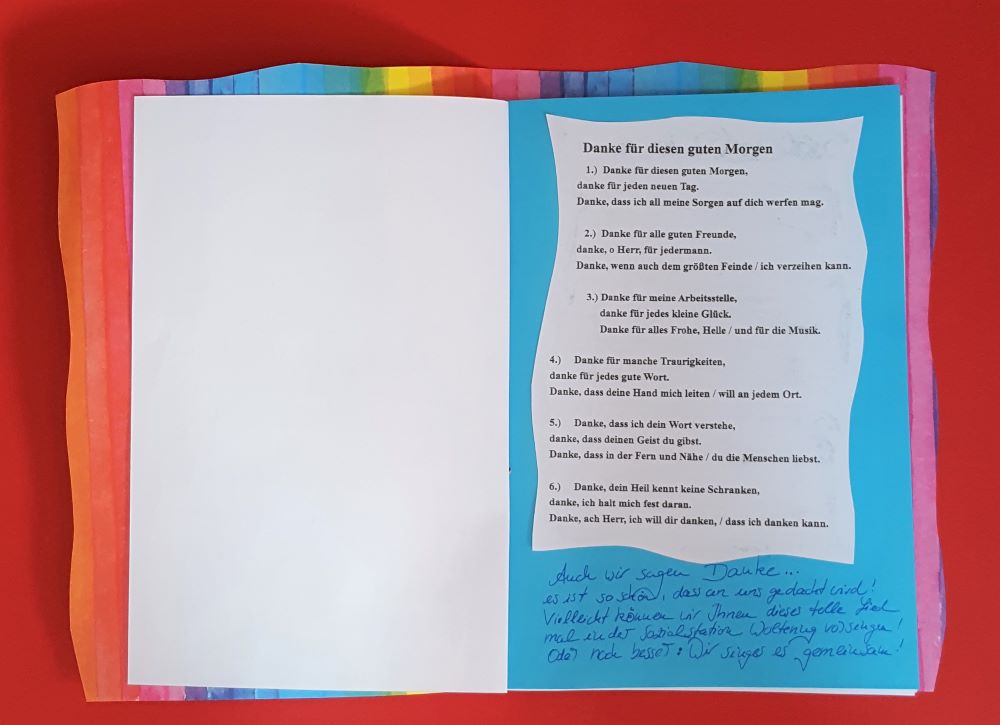 Danke für diesen guten Morgen
1.) Danke für diesen guten Morgen,
danke für jeden neuen Tag.
Danke, dass ich all meine Sorgen auf dich werfen mag.
2.) Danke für alle guten Freunde,
danke, o Herr, für jedermann.
Danke, wenn auch dem größten Feinde / ich verzeihen kann.
3.) Danke für meine Arbeitsstelle,
danke für jedes kleine Glück.
Danke für alles Frohe, Helle / und für die Musik.
4.) Danke für manche Traurigkeiten,
danke für jedes gute Wort.
Danke, dass deine Hand mich leiten / will an jedem Ort.
5.) Danke, dass ich dein Wort verstehe,
danke, dass deinen Geist du gibst.
Danke, dass in der Fern und Nähe / du die Menschen liebst.
6.) Danke, dein Heil kennt keine Schranken,
danke, ich halt mich fest daran.
Danke, ach Herr, ich will dir danken, / dass ich danken kann.
Auch wir sagen Danke...
es ist so schön, dass an uns gedacht wird!
Vielleicht können wir Ihnen dieses tolle Lied
mal in der Sozialstation vorsingen!
Oder noch besser: Wir singen es gemeinsam!